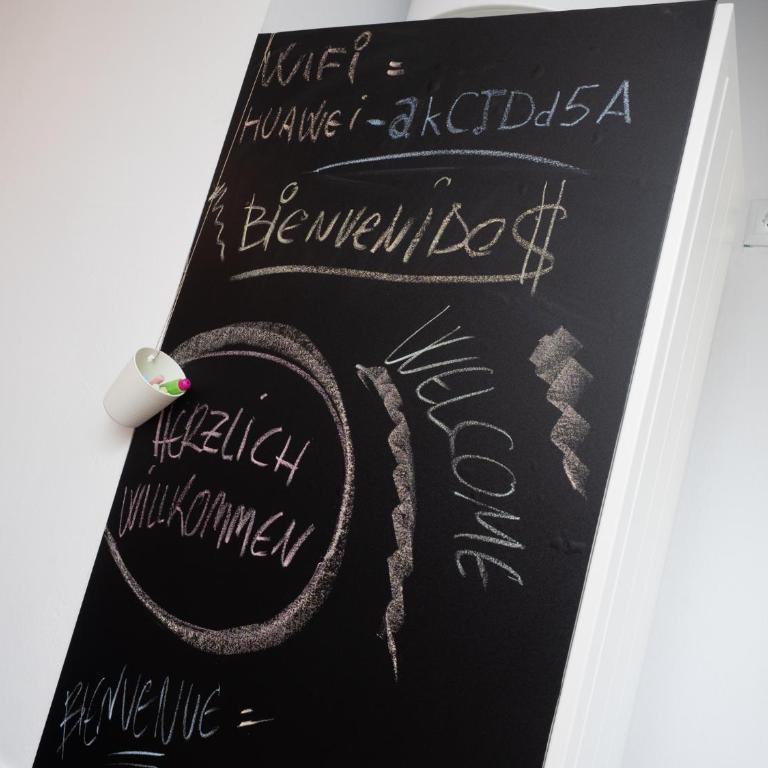 WiFi =
HUAWEi-akCJDd5A
BiENVENiDO$
WELCOME
HERZLiCH
WiLLKOMMEN
BIENVENUE =